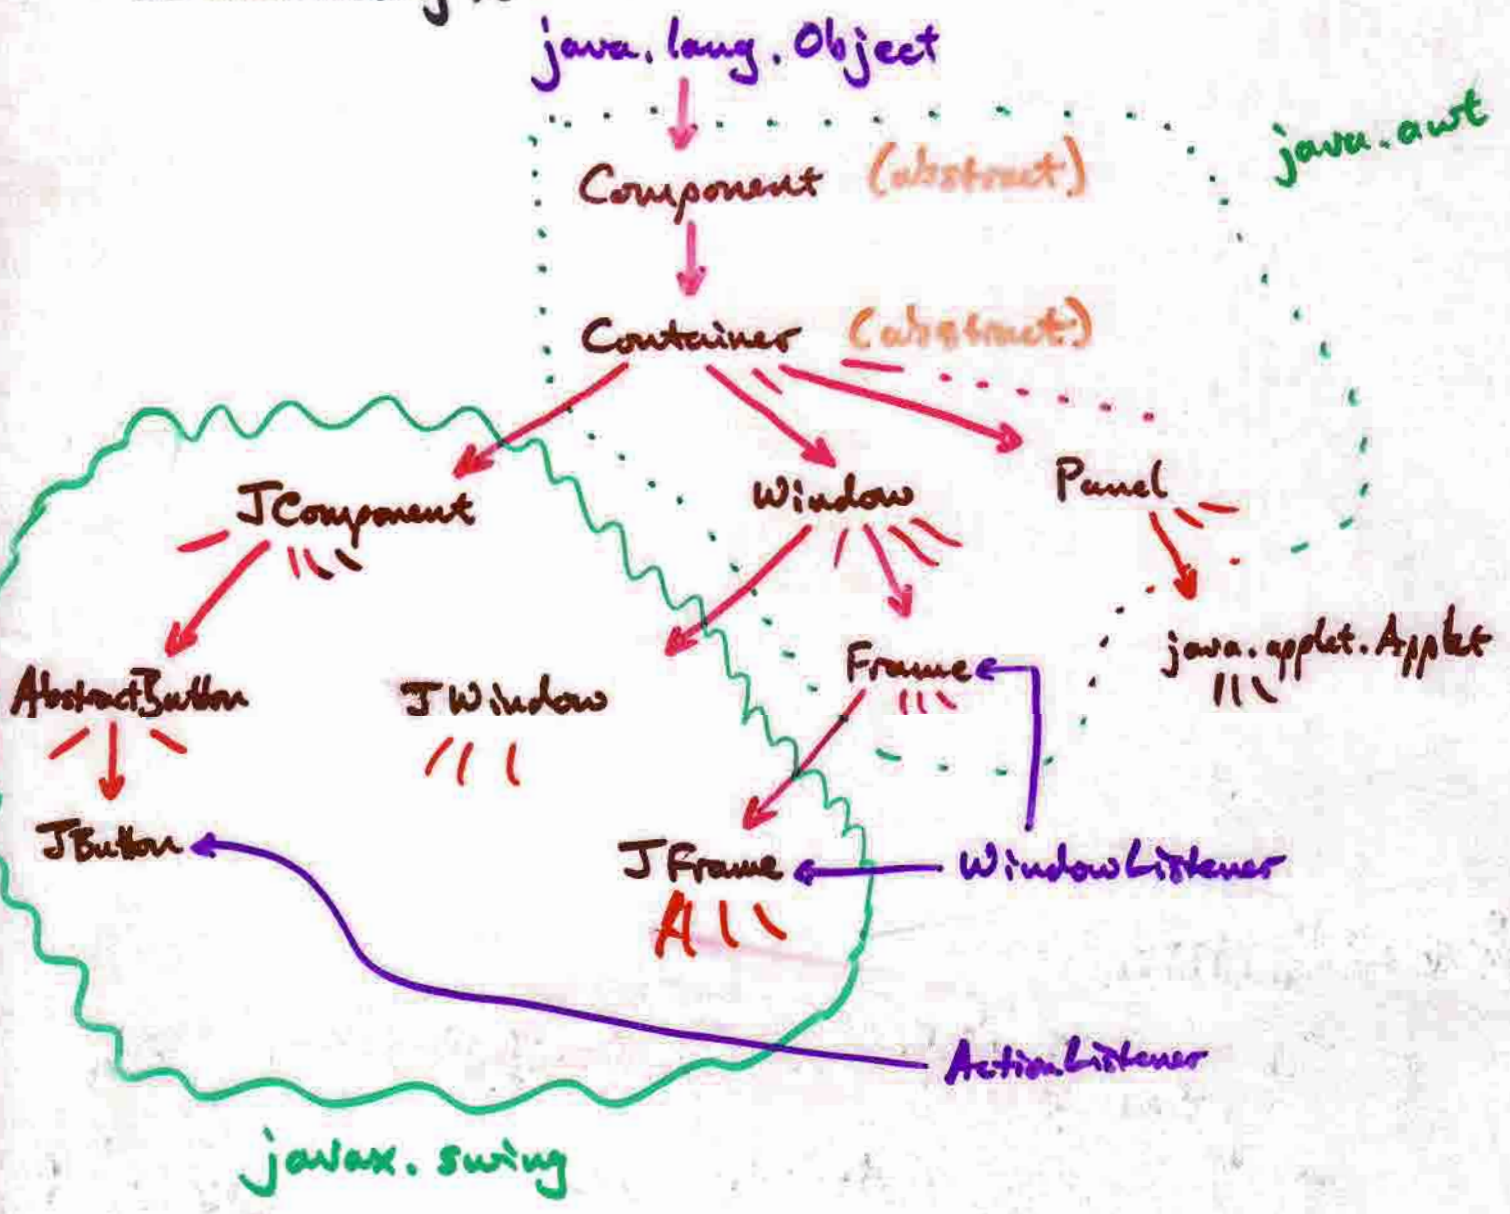 java.lang.Object
java.awt
Component (abstract)
Container (abstract)
JComponent
Window
Panel
AbstractButton
JWindow
Frame
java.applet.Applet
JButton
JFrame
WindowListener
ActionListener
javax.swing